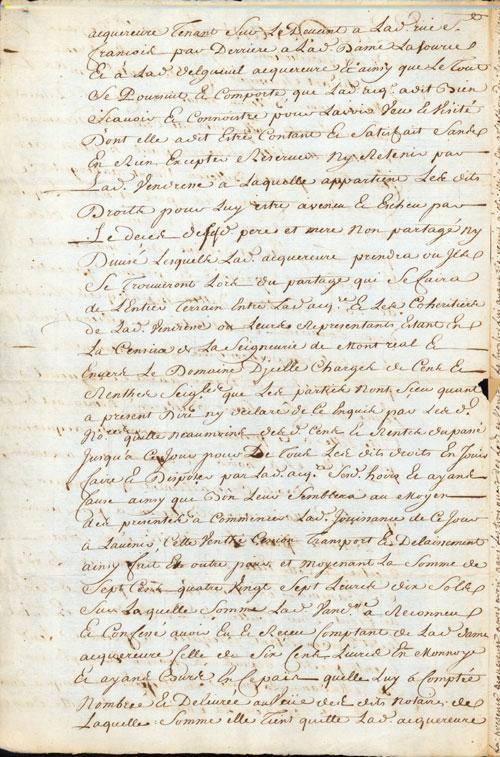 acquereure Tenant Sur Le Devant a Lad. rue St.
francois par Derriere a Lad. Dame Lafource
Et a Lad. acquereure Et ainsy que Le Tout
Se Poursuit Et Comporte que Lad. acq. a dit Bien
Scavoir Et Connoistre pour Lavoir Veu et Visité
Dont elle a dit Estre Contant Et Satisfait Sans
En Rien Excepter Reserver Ny Retenir par
Lad. Vendrese a Laquelle appartient Lesd. dits
Droits pour Luy estre avenu Et Escheu par
Le decés desfq. pere et mere Non partagé ny
Divisé Lesquels Lad. acquereure prendra ou Ils
Se Trouveront Lors du partage qui Se faira
de L'Entier Terrain Entre Lad. acq.re Et Les Coheritiers
de Lad. Vendrese ou Leurs Representants Estant En
La Censive de La Seigneurie de Montreal Et
Envers Le Domaine D'jcelle Chargés de Cens Et
Renthes Seig.les que Les parties N'ont Sceu quant
a present Dire ny declarer de ce Enquis par Les d.
No.res quitte neanmoins desd. Cens Et Rentes du passé
Jusqu'a Ce Jour pour De Tous Les dits droits En Jouir
faire Et Disposer par Lad. acq.re Sesd. hoirs Et ayans
Cause ainsy que Bon Leur Semblera au Moyen
des presentes a Commencer Lad. Jouissance de Ce Jour
a L'avenir, Cette Venthe Cession Transport Et Delaissement
ainsy fait En outre pour et Moyenant La Somme de
Sept Cent quatre Vingt Sept Livres dix Sols
Sur Laquelle Somme Lad. Vand.re a Reconneu
Et Confessé avoir Eu Et Receu Comptant de Lad. Dame
acquereure Celle de Six Cent Livres En Monnoye
Et ayant Cours En Ce païs quelle Luy a Comptée
Nombrée Et Delivrée au Veüe des dits Notaires de
Laquelle Somme elle Tient quitte Lad. acquereure